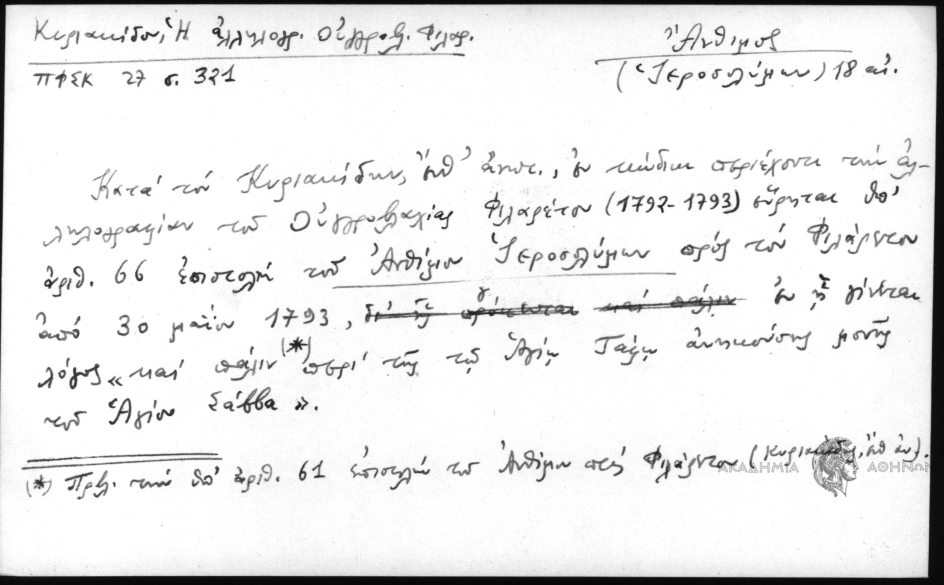 Κυριακίδου, Ἡ ἀλληλογρ. Οὑγγροβλ. Φιλαρ.
Ἄνθιμος
ΠΦΣΚ 27 σ. 321
(Ἱεροσολύμων) 18 αἰ.
Κατὰ τὸν Κυριακίδην, ἔνθ' ἀνωτ., ἐν κώδικι περιέχοντι τὴν ἀλ-
ληλογραφίαν τοῦ Οὑγγροβλαχίας Φιλαρέτου (1792-1793) εὕρηται ὑπ'
ἀριθ. 66 ἐπιστολὴ τοῦ Ἀνθίμου Ἱεροσολύμων πρὸς τὸν Φιλάρετον
ἀπὸ 30 μαΐου 1793, ἐν ᾗ γίνεται
λόγος « καὶ πάλιν (*) περὶ τῆς τῷ Ἁγίῳ Τάφῳ ἀνηκούσης μονῆς
τοῦ Ἁγίου Σάββα ».
(*) Πρβλ. τὴν ὑπ' ἀριθ. 61 ἐπιστολὴν τοῦ Ἀνθίμου πρὸς Φιλάρετον (Κυριακίδης, ἔνθ' ἀν.).
ΑΚΑΔΗΜΙΑ ΑΘΗΝΩΝ